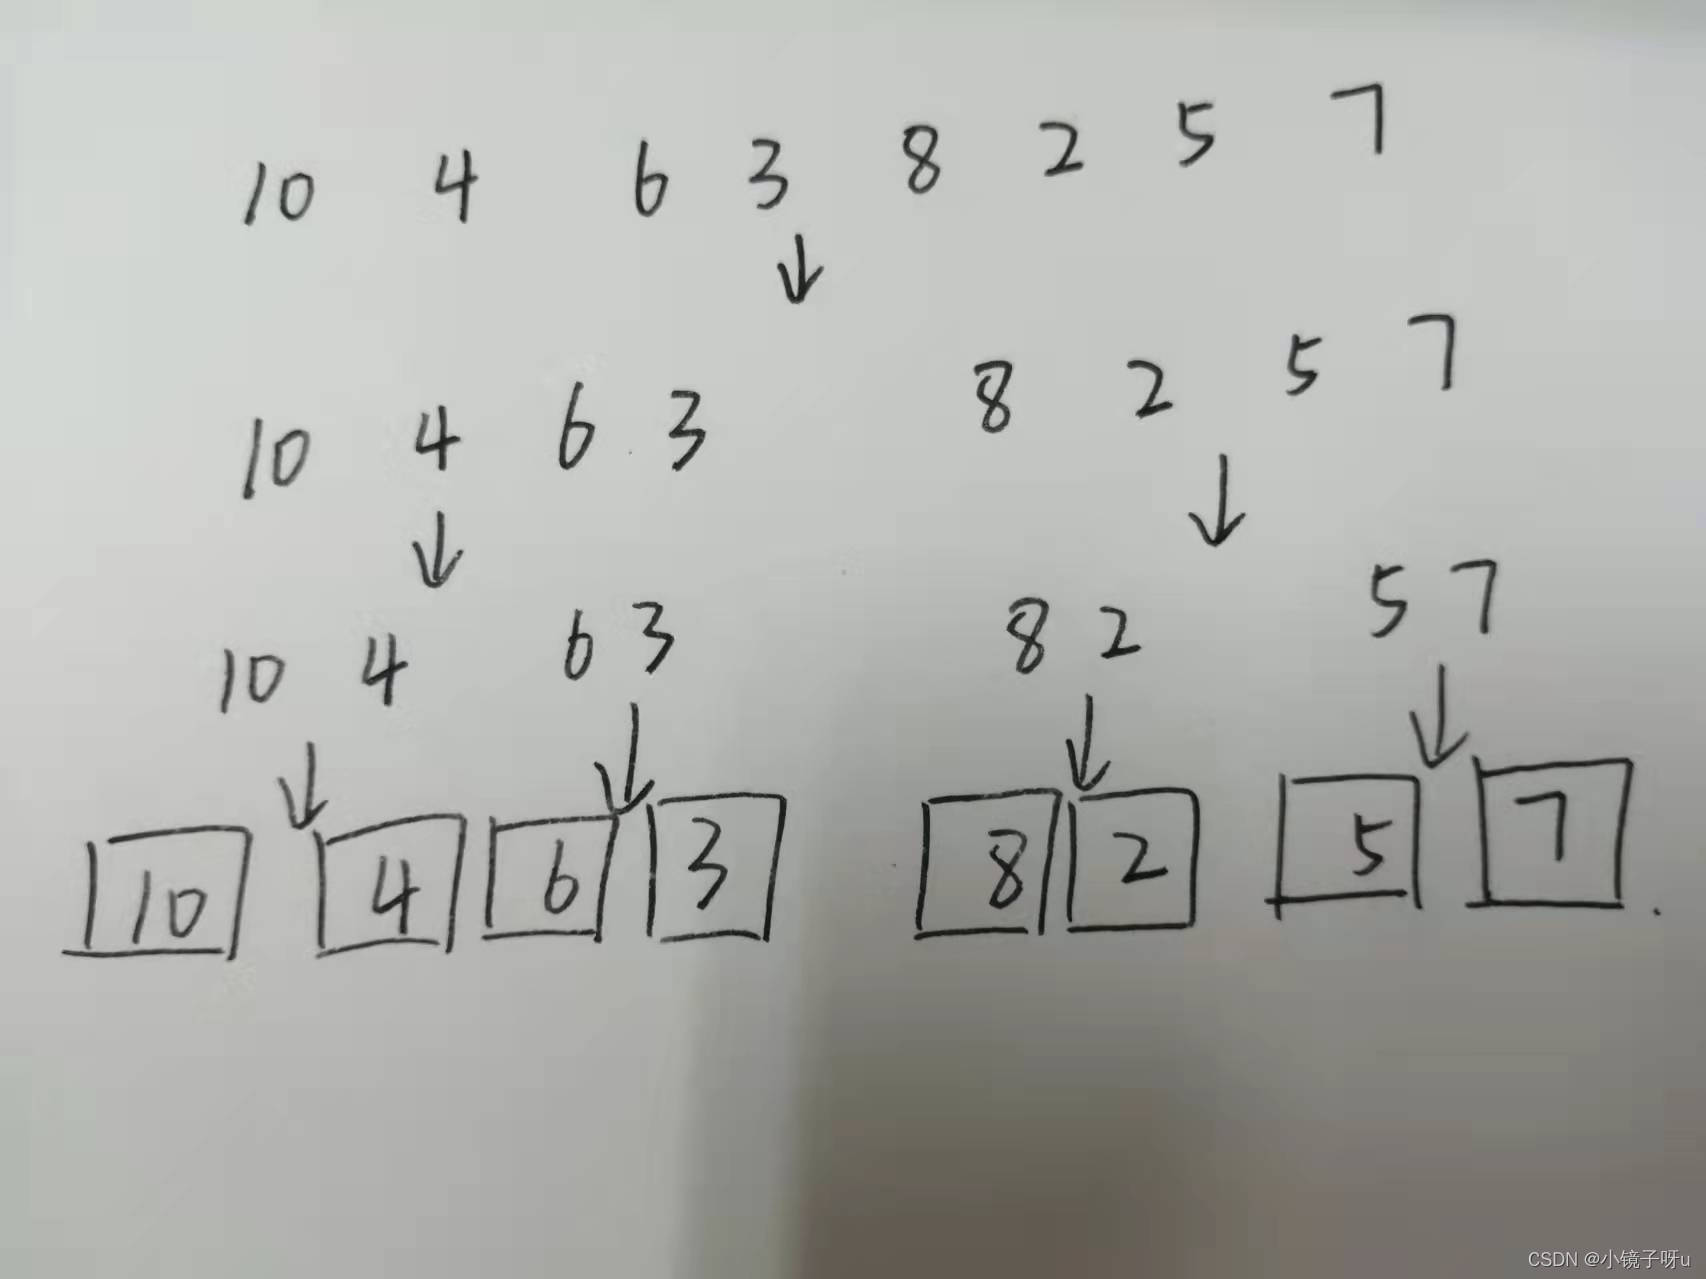 10 4 6 3 8 2 5 7
10 4 6 3 8 2 5 7
10 4 6 3 8 2 5 7
10 4 6 3 8 2 5 7
CSDN @小镜子呀u